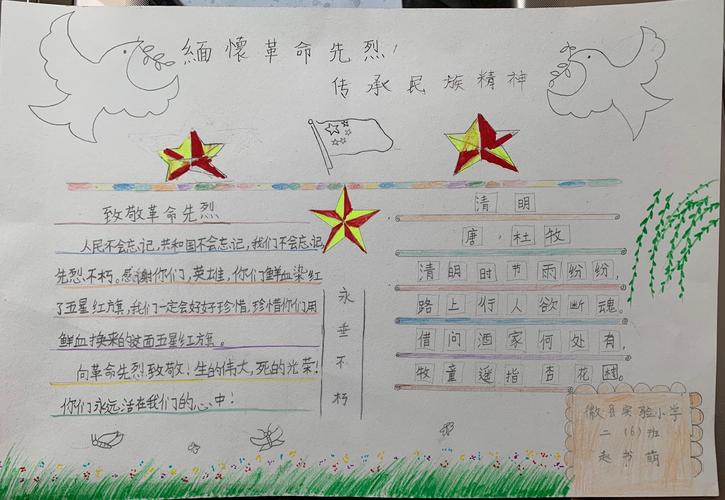 缅懷革命先烈,
传承民族精神
致敬革命先烈
人民不会忘记,共和国不会忘记,我们不会忘记,
先烈不朽。感谢你们,英雄,你们鲜血染红
了五星红旗,我们一定会好好珍惜,珍惜你们用
鲜血换来的这面五星红旗。
向革命先烈致敬!生的伟大,死的光荣!
你们永远活在我们的心中!
永垂不朽
清明
唐·杜牧
清明时节雨纷纷,
路上行人欲断魂。
借问酒家何处有,
牧童遥指杏花村。
徽县实验小学
二(6)班
赵书萌